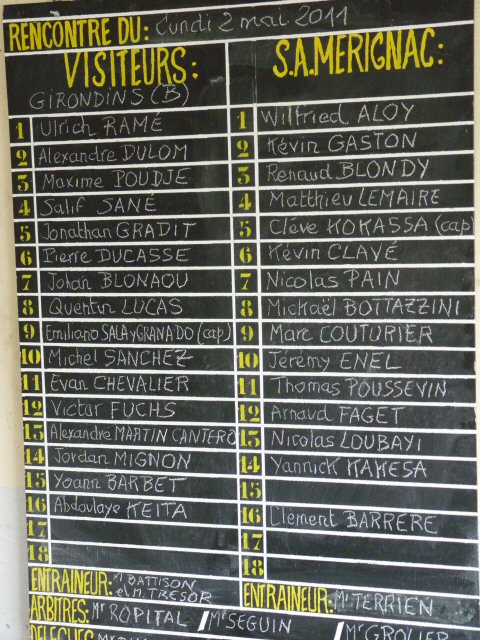 RENCONTRE DU: Lundi 2 mai 2011
VISITEURS:
GIRONDINS (B)
1 Ulrich RAMÉ
2 Alexandre DULOM
3 Maxime POUDJE
4 Salif SANÉ
5 Jonathan GRADIT
6 Pierre DUCASSE
7 Johan BLONAOU
8 Quentin LUCAS
9 Emiliano SALA y GRANADO (cap)
10 Michel SANCHEZ
11 Evan CHEVALIER
12 Victor FUCHS
13 Alexandre MARTIN CANTERO
14 Jordan MIGNON
15 Yoann BARBET
16 Abdoulaye KEITA
17
18
ENTRAINEUR: Mr BATTISON
et M. TRESOR
S.A.MERIGNAC:
1 Wilfried ALOY
2 Kévin GASTON
3 Renaud BLONDY
4 Matthieu LEMAIRE
5 Clève KOKASSA (cap)
6 Kévin CLAVÉ
7 Nicolas PAIN
8 Mickaël BOTTAZZINI
9 Marc COUTURIER
10 Jérémy ENEL
11 Thomas POUSSEVIN
12 Arnaud FAGET
13 Nicolas LOUBAYI
14 Yannick KAKESA
15
16 Clément BARRERE
17
18
ENTRAINEUR: Mr TERRIEN
ARBITRES: Mr ROPITAL / Mr SEGUIN / Mr
DELEGUES